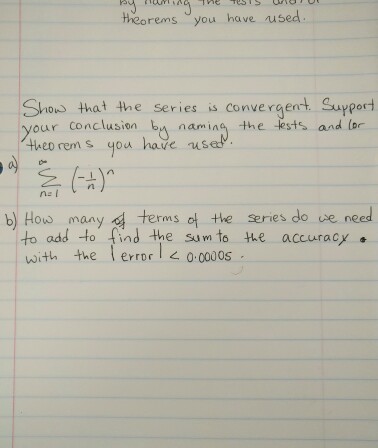 by naming the tests and/or
theorems you have used.
Show that the series is convergent. Support
your conclusion by naming the tests and/or
theorems you have used.
a) ∞
Σ (-1/n)^n
n=1
b) How many terms of the series do we need
to add to find the sum to the accuracy
with the |error| < 0.00005.